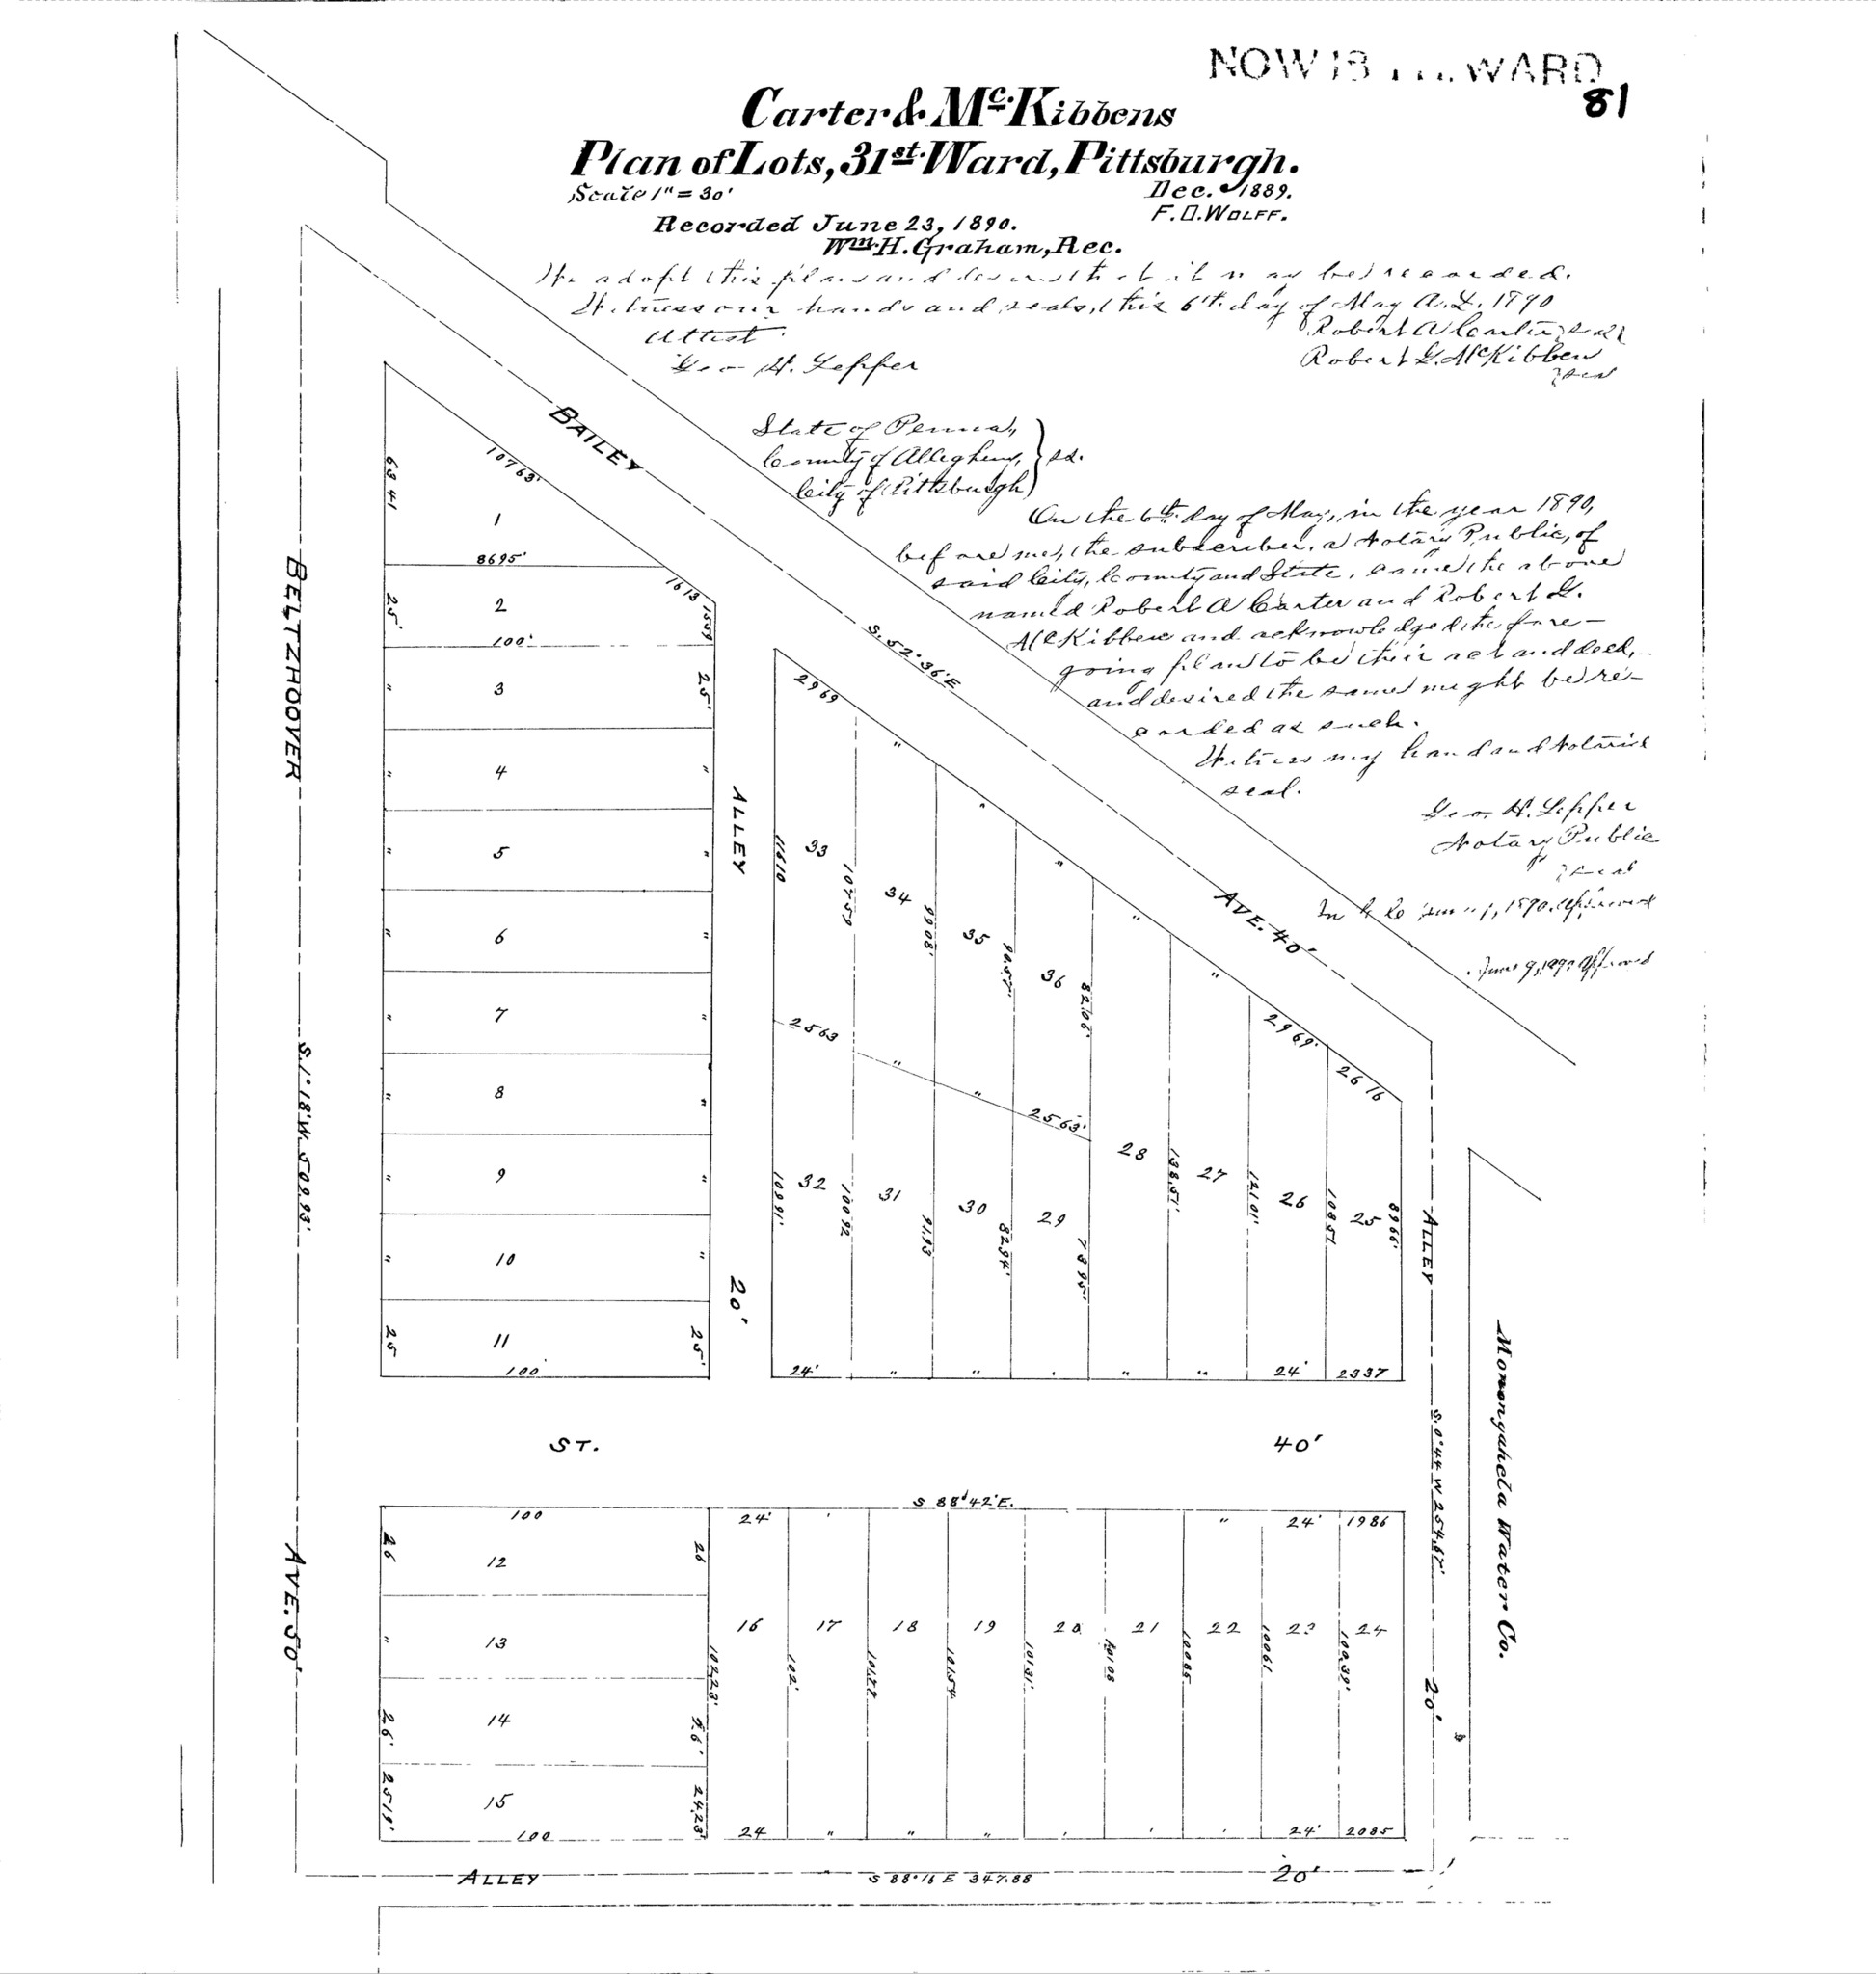 NOW 13 WARD
81
Carter & McKibbens
Plan of Lots, 31st Ward, Pittsburgh.
Scale 1" = 30'
Dec. 1889.
F. O. WOLFF.
Recorded June 23, 1890.
Wm. H. Graham, Rec.
We adopt this plan and desire that it may be recorded.
Witness our hands and seals, this 6th day of May A.D. 1890
Attest
Robert A Carter seal
Geo H. Lepper
Robert G. McKibben
seal
State of Penna,
County of Allegheny, } ss.
City of Pittsburgh
On the 6th day of May, in the year 1890,
before me, the subscriber, a Notary Public, of
said City, County and State, came the above
named Robert A Carter and Robert G.
McKibben and acknowledged the fore-
going plan to be their act and deed,
and desired the same might be re-
corded as such.
Witness my hand and Notarial
seal.
Geo. H. Lepper
Notary Public
seal
1890. Approved
June 9, 1890 Approved
BAILEY
S. 52° 36' E
AVE. 40'
BELTZHOOVER
S. 1° 18' W. 509.93'
AVE. 50'
63 41
107 63'
1
86 95'
16 13
15 59
25'
2
100'
3
25'
"
4
"
"
5
"
"
6
"
"
7
"
"
8
"
"
9
"
"
10
"
"
11
25
25'
100'
ALLEY
20'
29 69
"
"
"
"
"
29 69'
26 16
116 10
33
107 59
34
99 08'
35
90.57'
36
82.08'
25 63
"
"
25 63'
109 91'
32
100 92
31
91.93
30
82 94'
29
73 95'
28
138.51'
27
121 01'
26
108 51
25
89 66'
24'
"
"
"
"
"
24'
23 37
ALLEY
S. 0° 44 W 254.67'
20'
Monongahela Water Co.
ST.
40'
S 88° 42' E.
100
26
12
26
"
13
26'
14
26'
25 19'
15
24.23'
100
24'
"
"
24'
19 86
16
17
18
19
20
21
22
23
24
102.23'
102'
101.77
101.54
101.31'
101 08
100 85
100 61
100.38'
24
"
"
"
"
"
"
24'
20 85
ALLEY
S 88° 16 E 347.88
20'